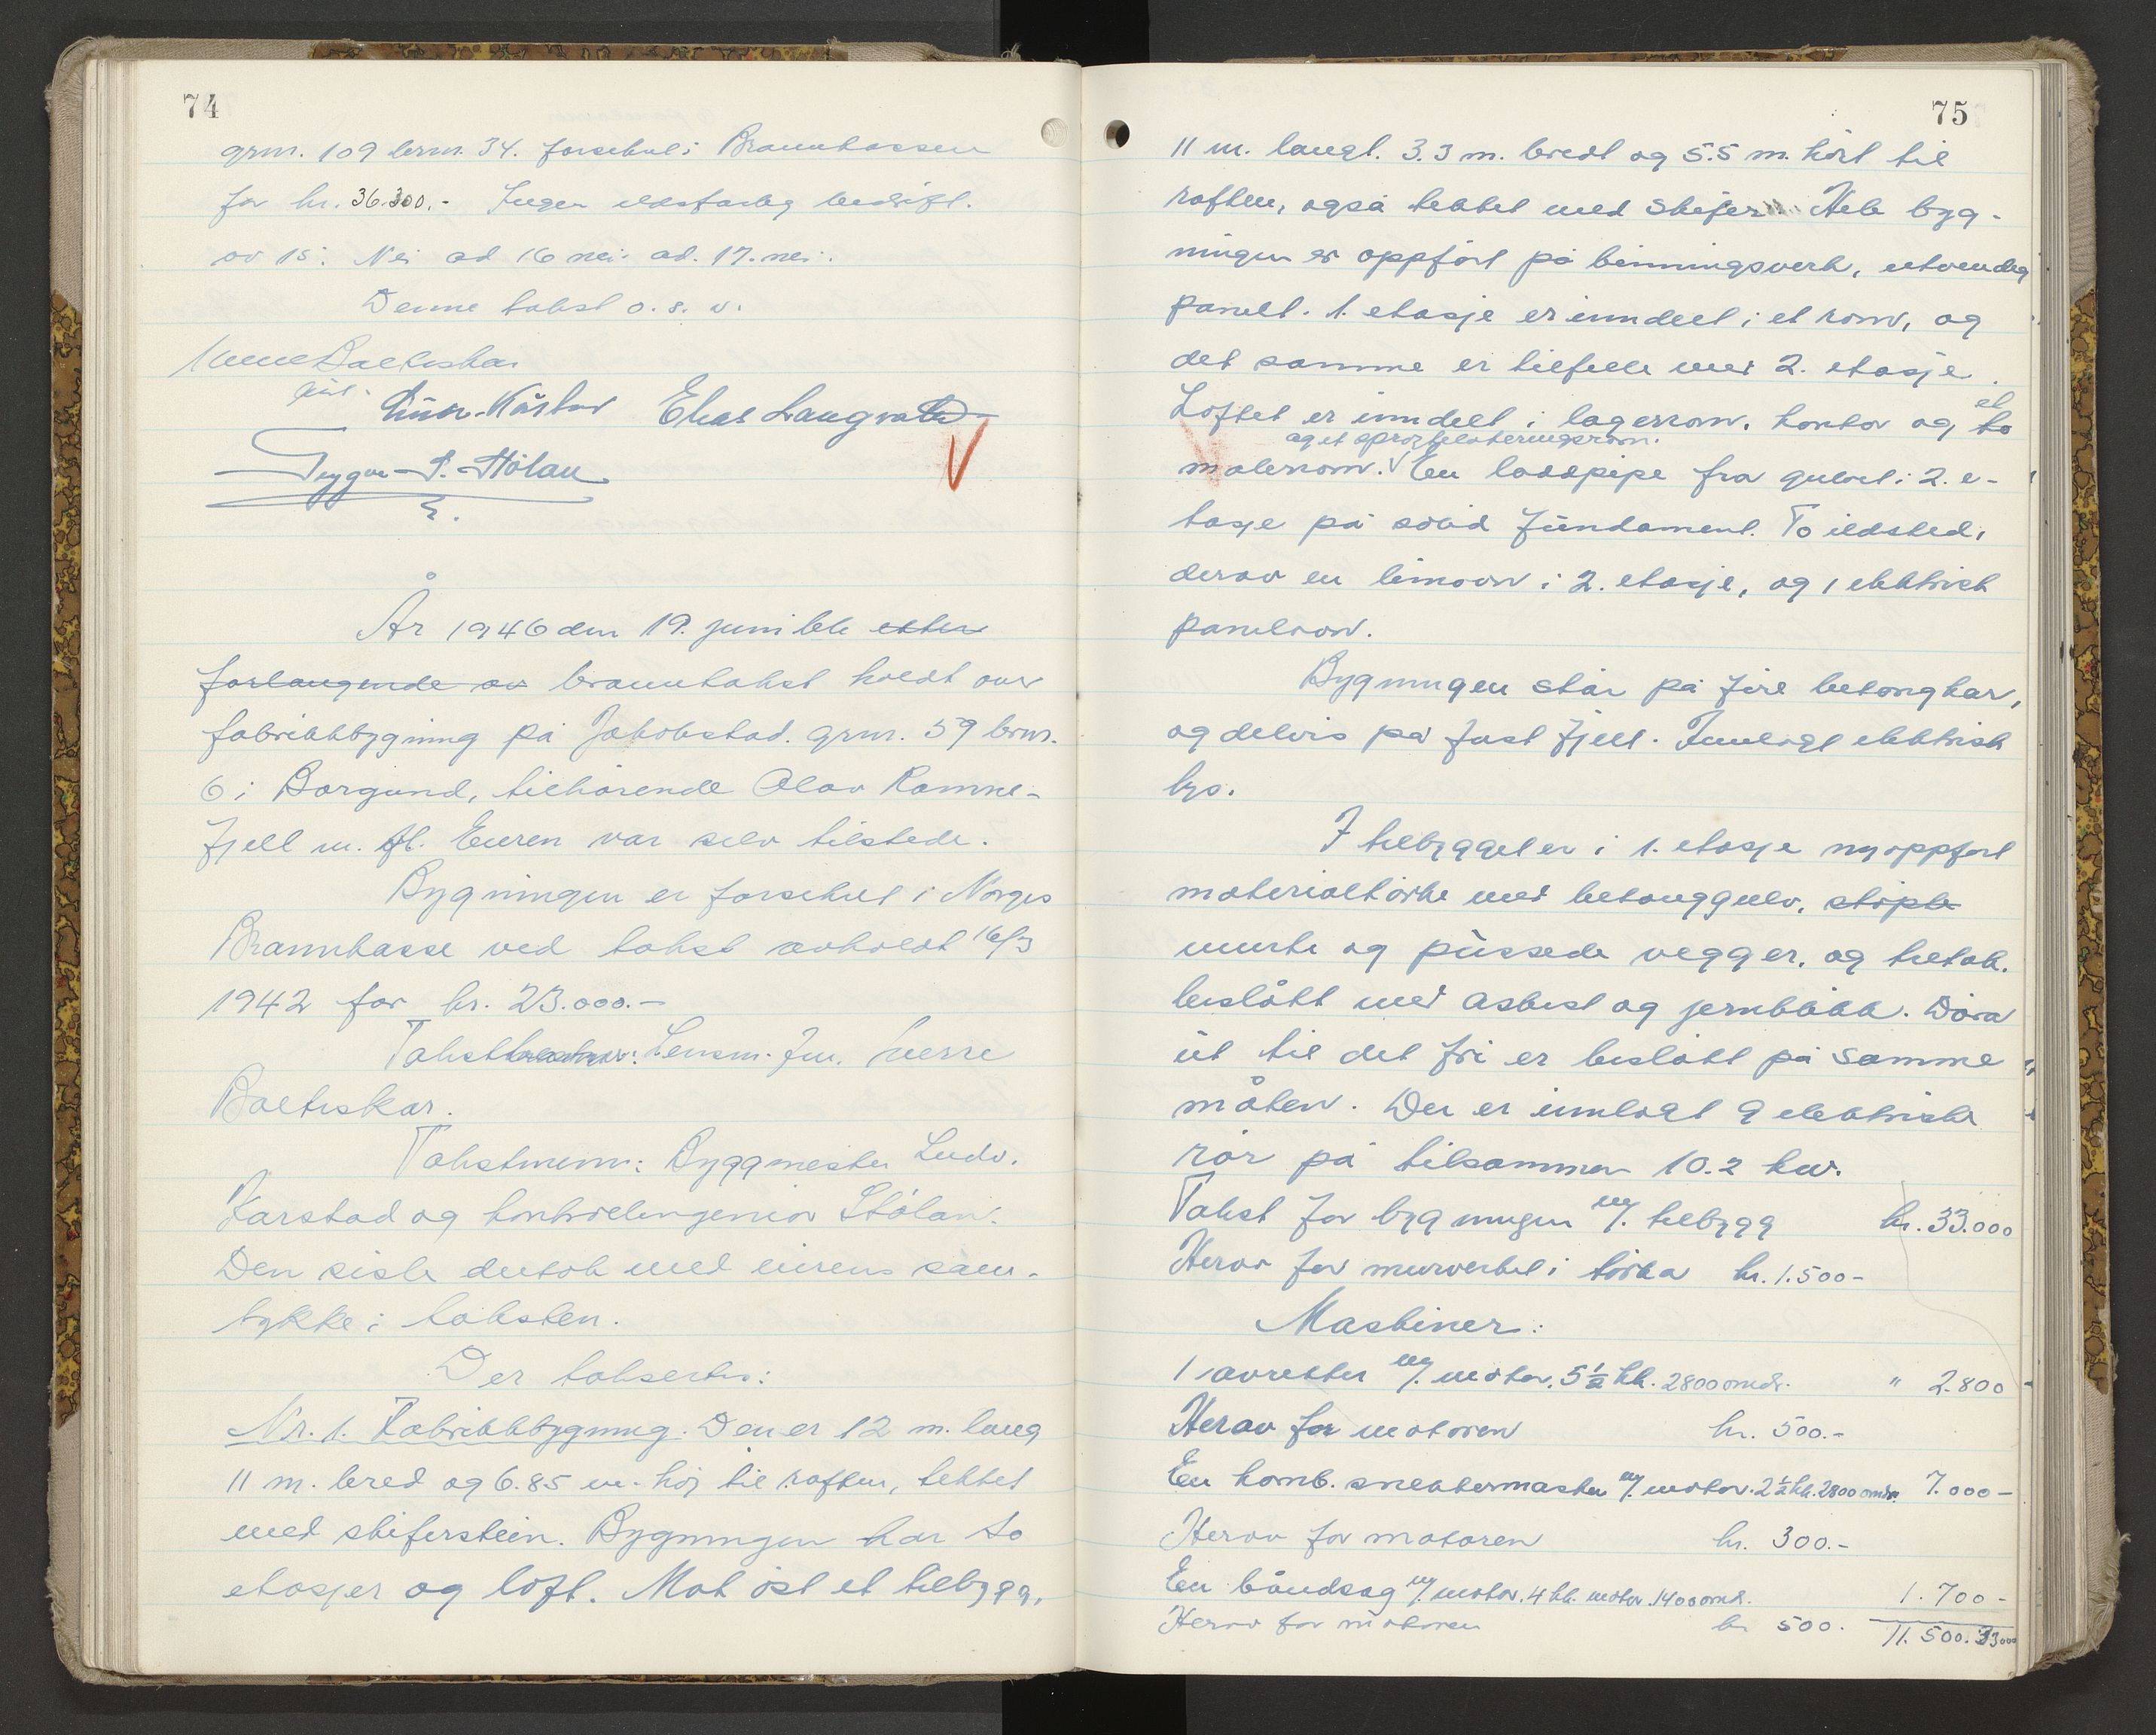 74
grnr. 109 brnr. 34. forsikret i Brannkassen
for kr. 36.300.- Ingen ildsfarlig bedrift.
av 15: Nei ad 16 nei. ad. 17. nei.
Denne takst o. s. v.
Balteskar
Elias Langvatn
Trygve P. Stölan
År 1946 den 19. juni ble etter
forlangende av branntakst holdt over
fabrikkbygning på Jakobstad. grnr. 59 brnr.
6 i Borgund, tilhörende Olav Ramne-
fjell m. fl. Eieren var selv tilstede.
Bygningen er forsikret i Norges
Brannkasse ved takst avholdt 16/3
1942 for kr. 23.000.-
Takst Lensm. fm. Sverre
Balteskar.
Takstmenn: Byggmester Ludv.
Karstad og kontrollingeniör Stölan.
Den siste deltok med eierens sam-
tykke i taksten.
Der takseres:
Nr. 1. Fabrikkbygning. Den er 12 m. lang
11 m. bred og 6.85 m. höj til raften, tekket
med skiferstein. Bygningen har to
etasjer og loft. Mot öst et tilbygg,
75
11 m. langt. 3.3 m. bredt og 5.5 m. höit til
raften, også tekket med skifer. Hele byg-
ningen er oppfört på binningsverk, utvendig
panelt. 1. etasje er inndelt i et rom, og
det samme er tilfelle med 2. etasje.
Loftet er inndelt i lagerrom. kontor og to et
malerrom. og et sprøytelakeringsrom. En laddpipe fra gulvet i 2. e-
tasje på solid fundament. To ildsted,
derav en limovn i 2. etasje, og 1 elektrisk
panelovn.
Bygningen står på fire betongkar,
og delvis på fast fjell. Innlagt elektrisk
lys.
I tilbygget er i 1. etasje ny oppfört
materialtörke med betonggulv, stöpte
murte og pussede vegger, og tretak.
beslått med asbest og jernblikk. Döra
ut til det fri er beslått på samme
måten. Der er innlagt 9 elektriske
rör på tilsammen 10.2 kw.
Takst for bygningen m/. tilbygg kr. 33.000
Herav for murverket i törka kr. 1.500-
Maskiner:
1 avretter m/. motor. 5½ hk. 2800 omdr. " 2.800-
Herav for motoren kr. 500.-
En komb. snekkermaskin m/. motor. 2½ hk. 2800 omdr. 7.000-
Herav for motoren kr. 300.-
En båndsag m/. motor. 4 hk. motor. 1400 omdr. 1.700-
Herav for motoren kr 500. 11.500. 33000